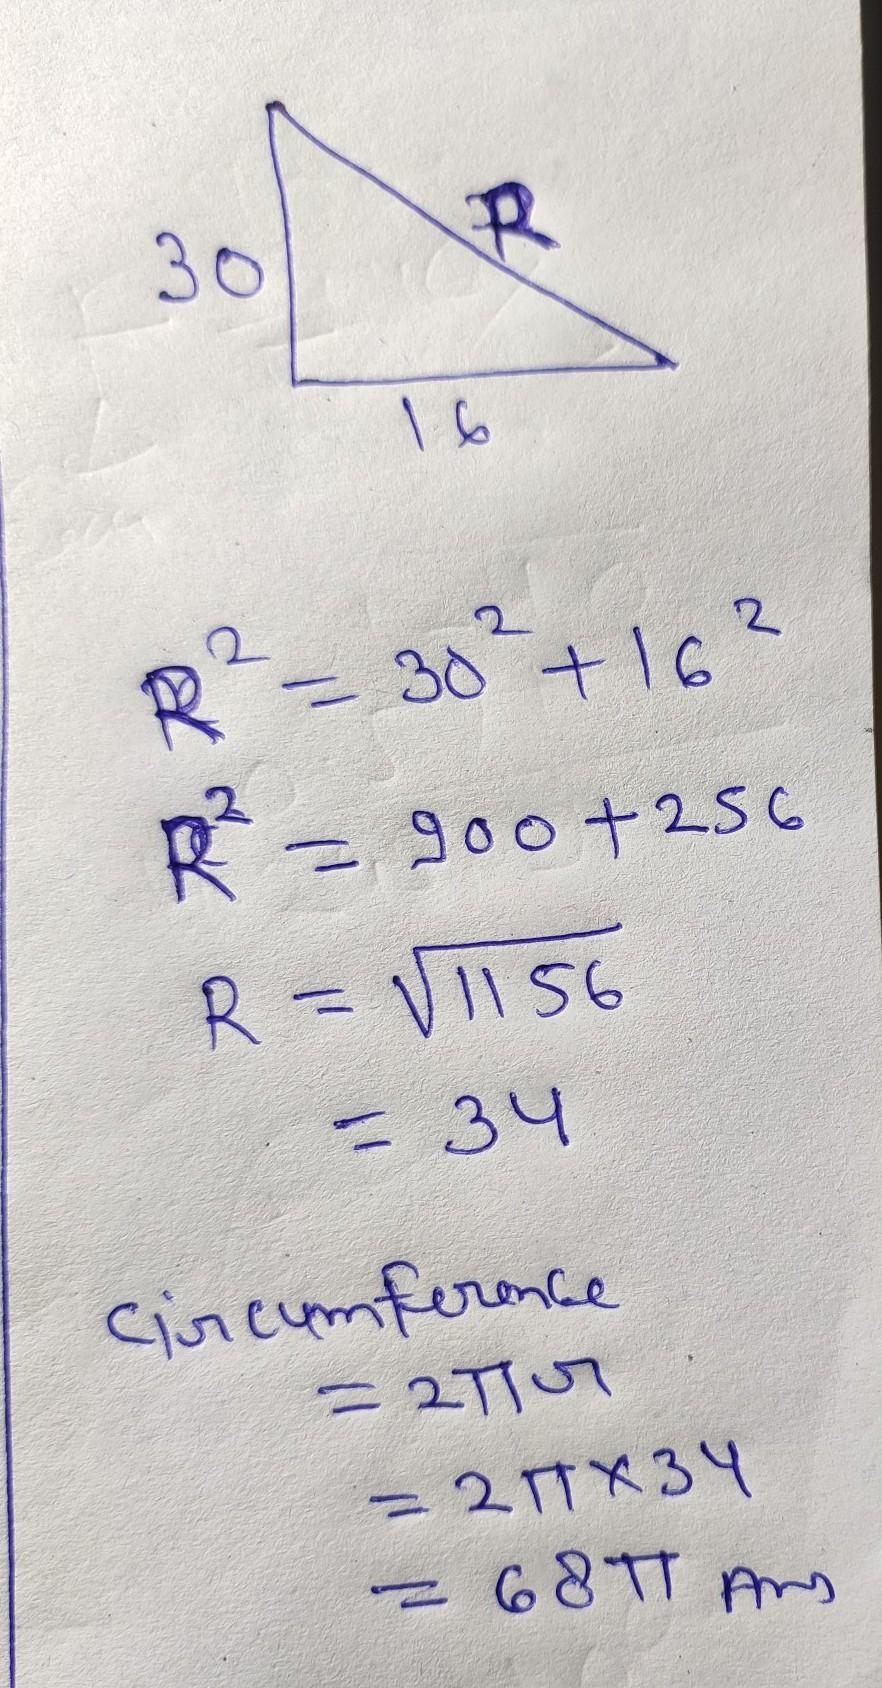 30
R
16
R² = 30² + 16²
R² = 900 + 256
R = √1156
= 34
Circumference
= 2πr
= 2π×34
= 68π Ans